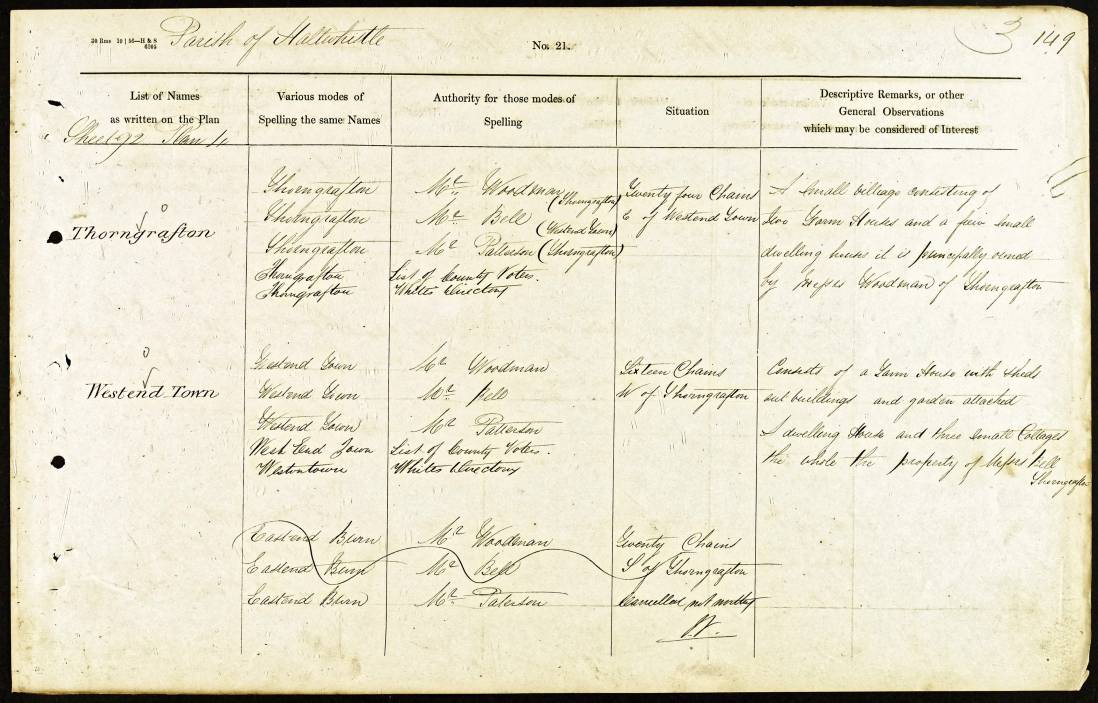 20 Rms 10 | 56—H & S
6305
Parish of Haltwhistle
No. 21.
3
149
List of Names
as written on the Plan
Various modes of
Spelling the same Names
Authority for those modes of
Spelling
Situation
Descriptive Remarks, or other
General Observations
which may be considered of Interest
Sheet 92 Plan
Thorngrafton
Thorngrafton
Thorngrafton
Thorngrafton
Thorngrafton
Thorngrafton
Mr. Woodman (Thorngrafton)
Mr. Bell (Westend Town)
Mr. Patterson (Thorngrafton)
List of County Voters.
Whites Directory
Twenty four Chains
E of Westend Town
A Small village consisting of
two Farm Houses and a few small
dwelling houses it is principally owned
by Messrs Woodman of Thorngrafton
Westend Town
Westend Town
Westend Town
Westend Town
West End Town
Westontown
Mr Woodman
Mr. Bell
Mr Patterson
List of County Voters.
Whites Directory
Sixteen Chains
W of Thorngrafton
Consists of a Farm House with sheds
out buildings and garden attached
A dwelling House and three small Cottages
the whole the property of Messrs Bell
Thorngrafton
Eastend Burn
Eastend Burn
Eastend Burn
Mr Woodman
Mr Bell
Mr. Paterson
Twenty Chains
S of Thorngrafton
Cancelled not